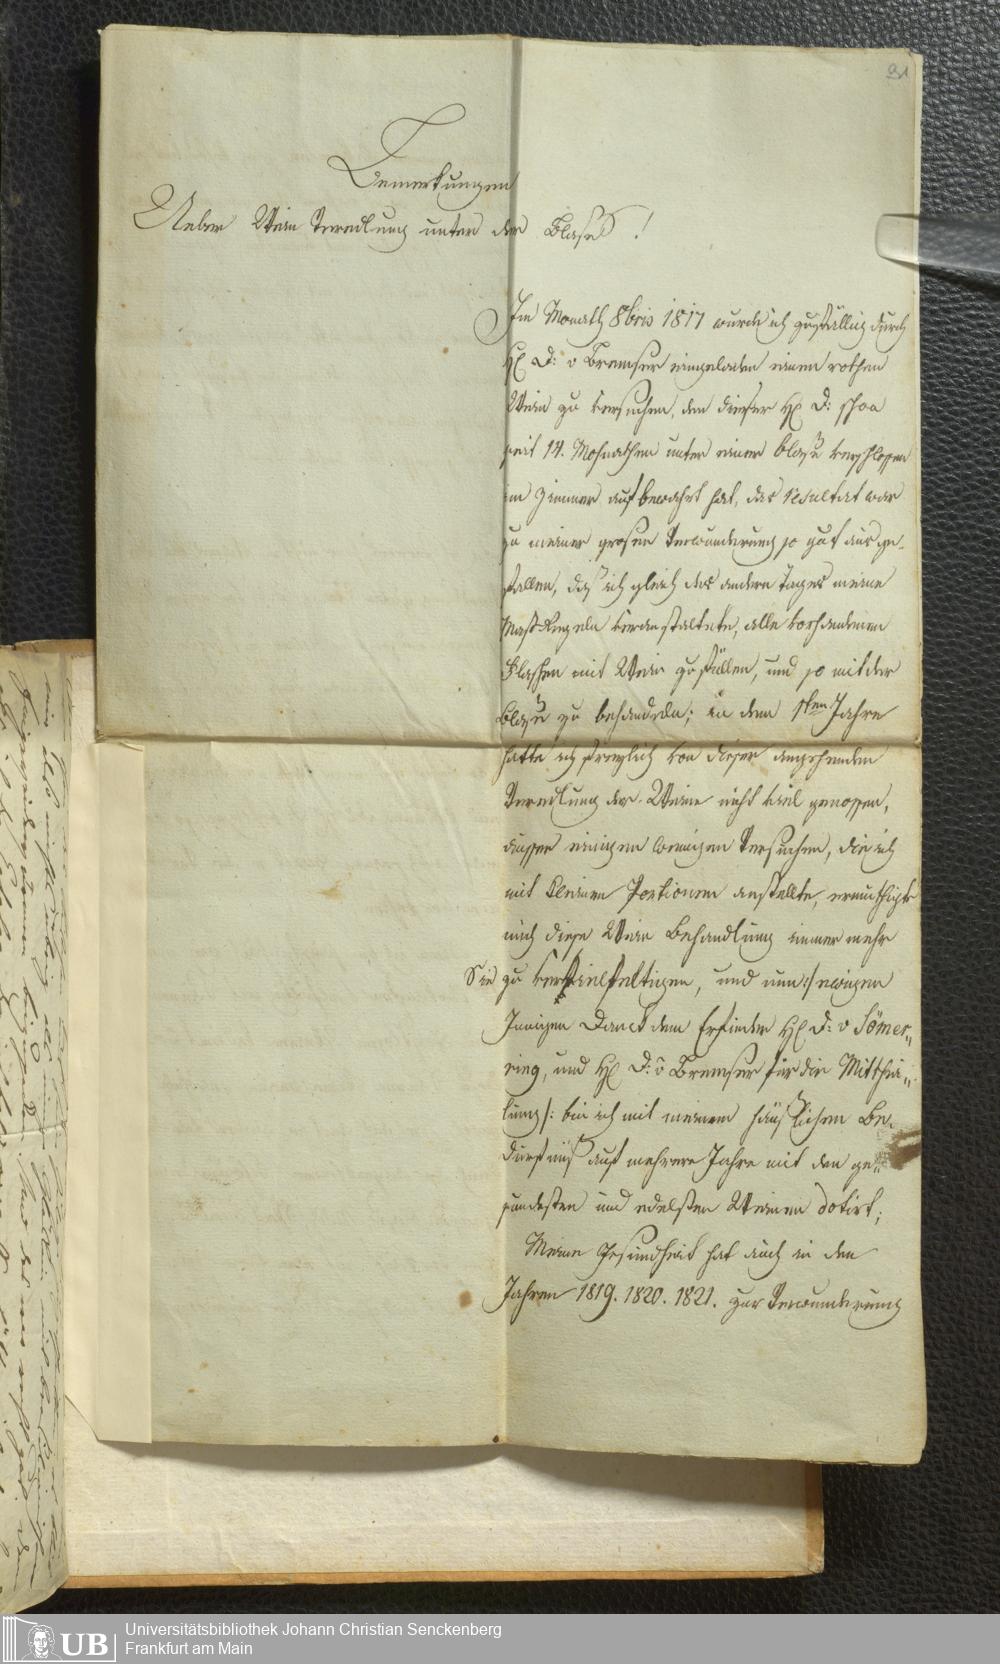 91
Bemerkungen
Ueber Wein Veredlung unter der Blase!
Im Monath 8bris 1817 wurde ich zufällig durch
H. D: v Bremser eingeladen einen rothen
Wein zu versuchen, den dieser H. D: schon
seit 14. Mohnathen unter einer Blase verschlossen
im Zimmer aufbewahrt hat, das resultat war
zu meiner grosen Verwunderung so gut ausge-
fallen, daß ich gleich des andern Tages meine
Maßregeln veranstaltete, alle vorhandenen
Flaschen mit Wein zu füllen, und so mit der
Blase zu behandeln; in dem 1ten Jahre
hatte ich freylich von dieser angehenden
Veredlung der Weine nicht viel genossen,
ausser einigen wenigen Versuchen, die ich
mit kleinen Portionen anstellte, ermuthigte
mich diese Wein Behandlung immer mehr
Sie zu vervielfältigen, und nun :/ ewigen
Innigen Danck dem Erfinder H. D: v Sömer„
ring, und H. D: v Bremser für die Mitthei„
lung /: bin ich mit meinem häuslichen Be„
dürfniß auf mehrere Jahre mit den ge„
sundesten und edelsten Weinen dotirt;
Meine Gesundheit hat auch in den
Jahren 1819. 1820. 1821. zur Verwunderung
UB
Universitätsbibliothek Johann Christian Senckenberg
Frankfurt am Main